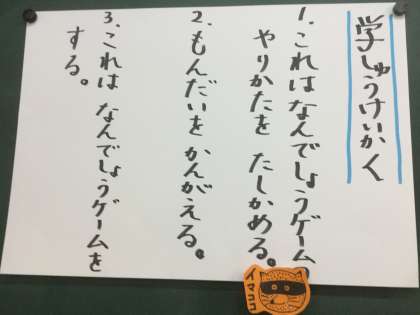 学しゅうけいかく
1.これはなんでしょうゲームの
やりかたを たしかめる。
2.もんだいを かんがえる。
3.これは なんでしょうゲームを
する。